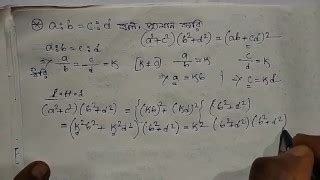 a:b = c:d হলে, প্রমাণ করি
(a²+c²)(b²+d²) = (ab+cd)²
a:b = c:d
ধরি a/b = c/d = K [K≠0] a/b = K c/d = K
⇒ a = Kb ⇒ c = Kd
L.H.S
(a²+c²)(b²+d²) = {(Kb)²+(Kd)²}{(b²+d²)}
= (K²b²+K²d²)(b²+d²) = K² (b²+d²)(b²+d²)